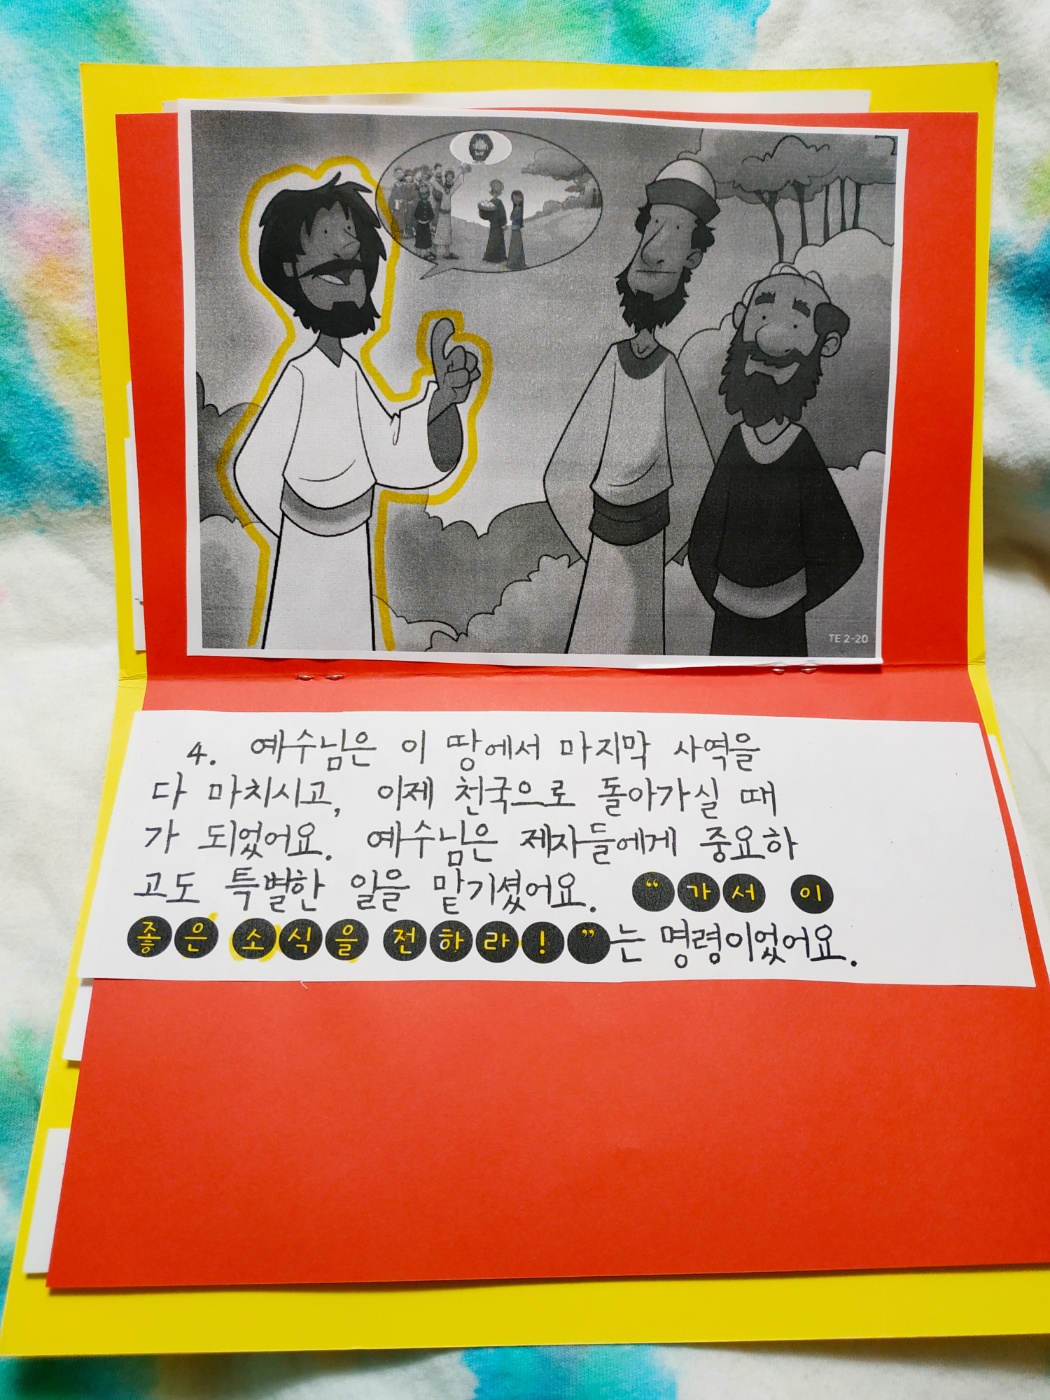 TE 2-20
4. 예수님은 이 땅에서 마지막 사역을
다 마치시고, 이제 천국으로 돌아가실 때
가 되었어요. 예수님은 제자들에게 중요하
고도 특별한 일을 맡기셨어요. “가서 이
좋은 소식을 전하라!”는 명령이었어요.